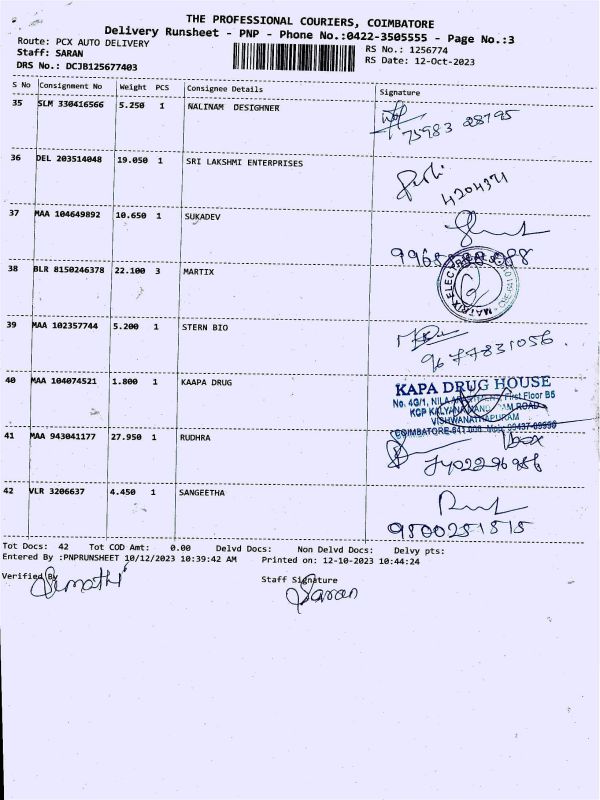 THE PROFESSIONAL COURIERS, COIMBATORE
Delivery Runsheet - PNP - Phone No.:0422-3505555 - Page No.:3
Route: PCX AUTO DELIVERY
RS No.: 1256774
Staff: SARAN
RS Date: 12-Oct-2023
DRS No.: DCJB125677403
S No Consignment No Weight PCS Consignee Details Signature
35 SLM 330416566 5.250 1 NALINAM DESIGHNER
75983 28795
36 DEL 203514048 19.050 1 SRI LAKSHMI ENTERPRISES
4204371
37 MAA 104649892 10.650 1 SUKADEV
38 BLR 8150246378 22.100 3 MARTIX
39 MAA 102357744 5.200 1 STERN BIO
9677831056
40 MAA 104074521 1.800 1 KAAPA DRUG
KAPA DRUG HOUSE
No. 4G/1, First Floor B5
KGP
VISHWANATHAPURAM
COIMBATORE-641
41 MAA 943041177 27.950 1 RUDHRA
42 VLR 3206637 4.450 1 SANGEETHA
9500251515
Tot Docs: 42 Tot COD Amt: 0.00 Delvd Docs: Non Delvd Docs: Delvy pts:
Entered By :PNPRUNSHEET 10/12/2023 10:39:42 AM Printed on: 12-10-2023 10:44:24
Verified By Staff Signature
Saran